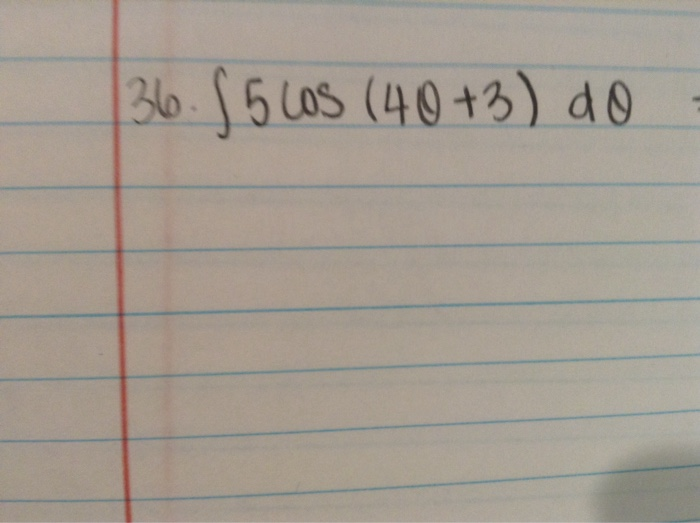 36. ∫ 5 cos (4θ+3) dθ